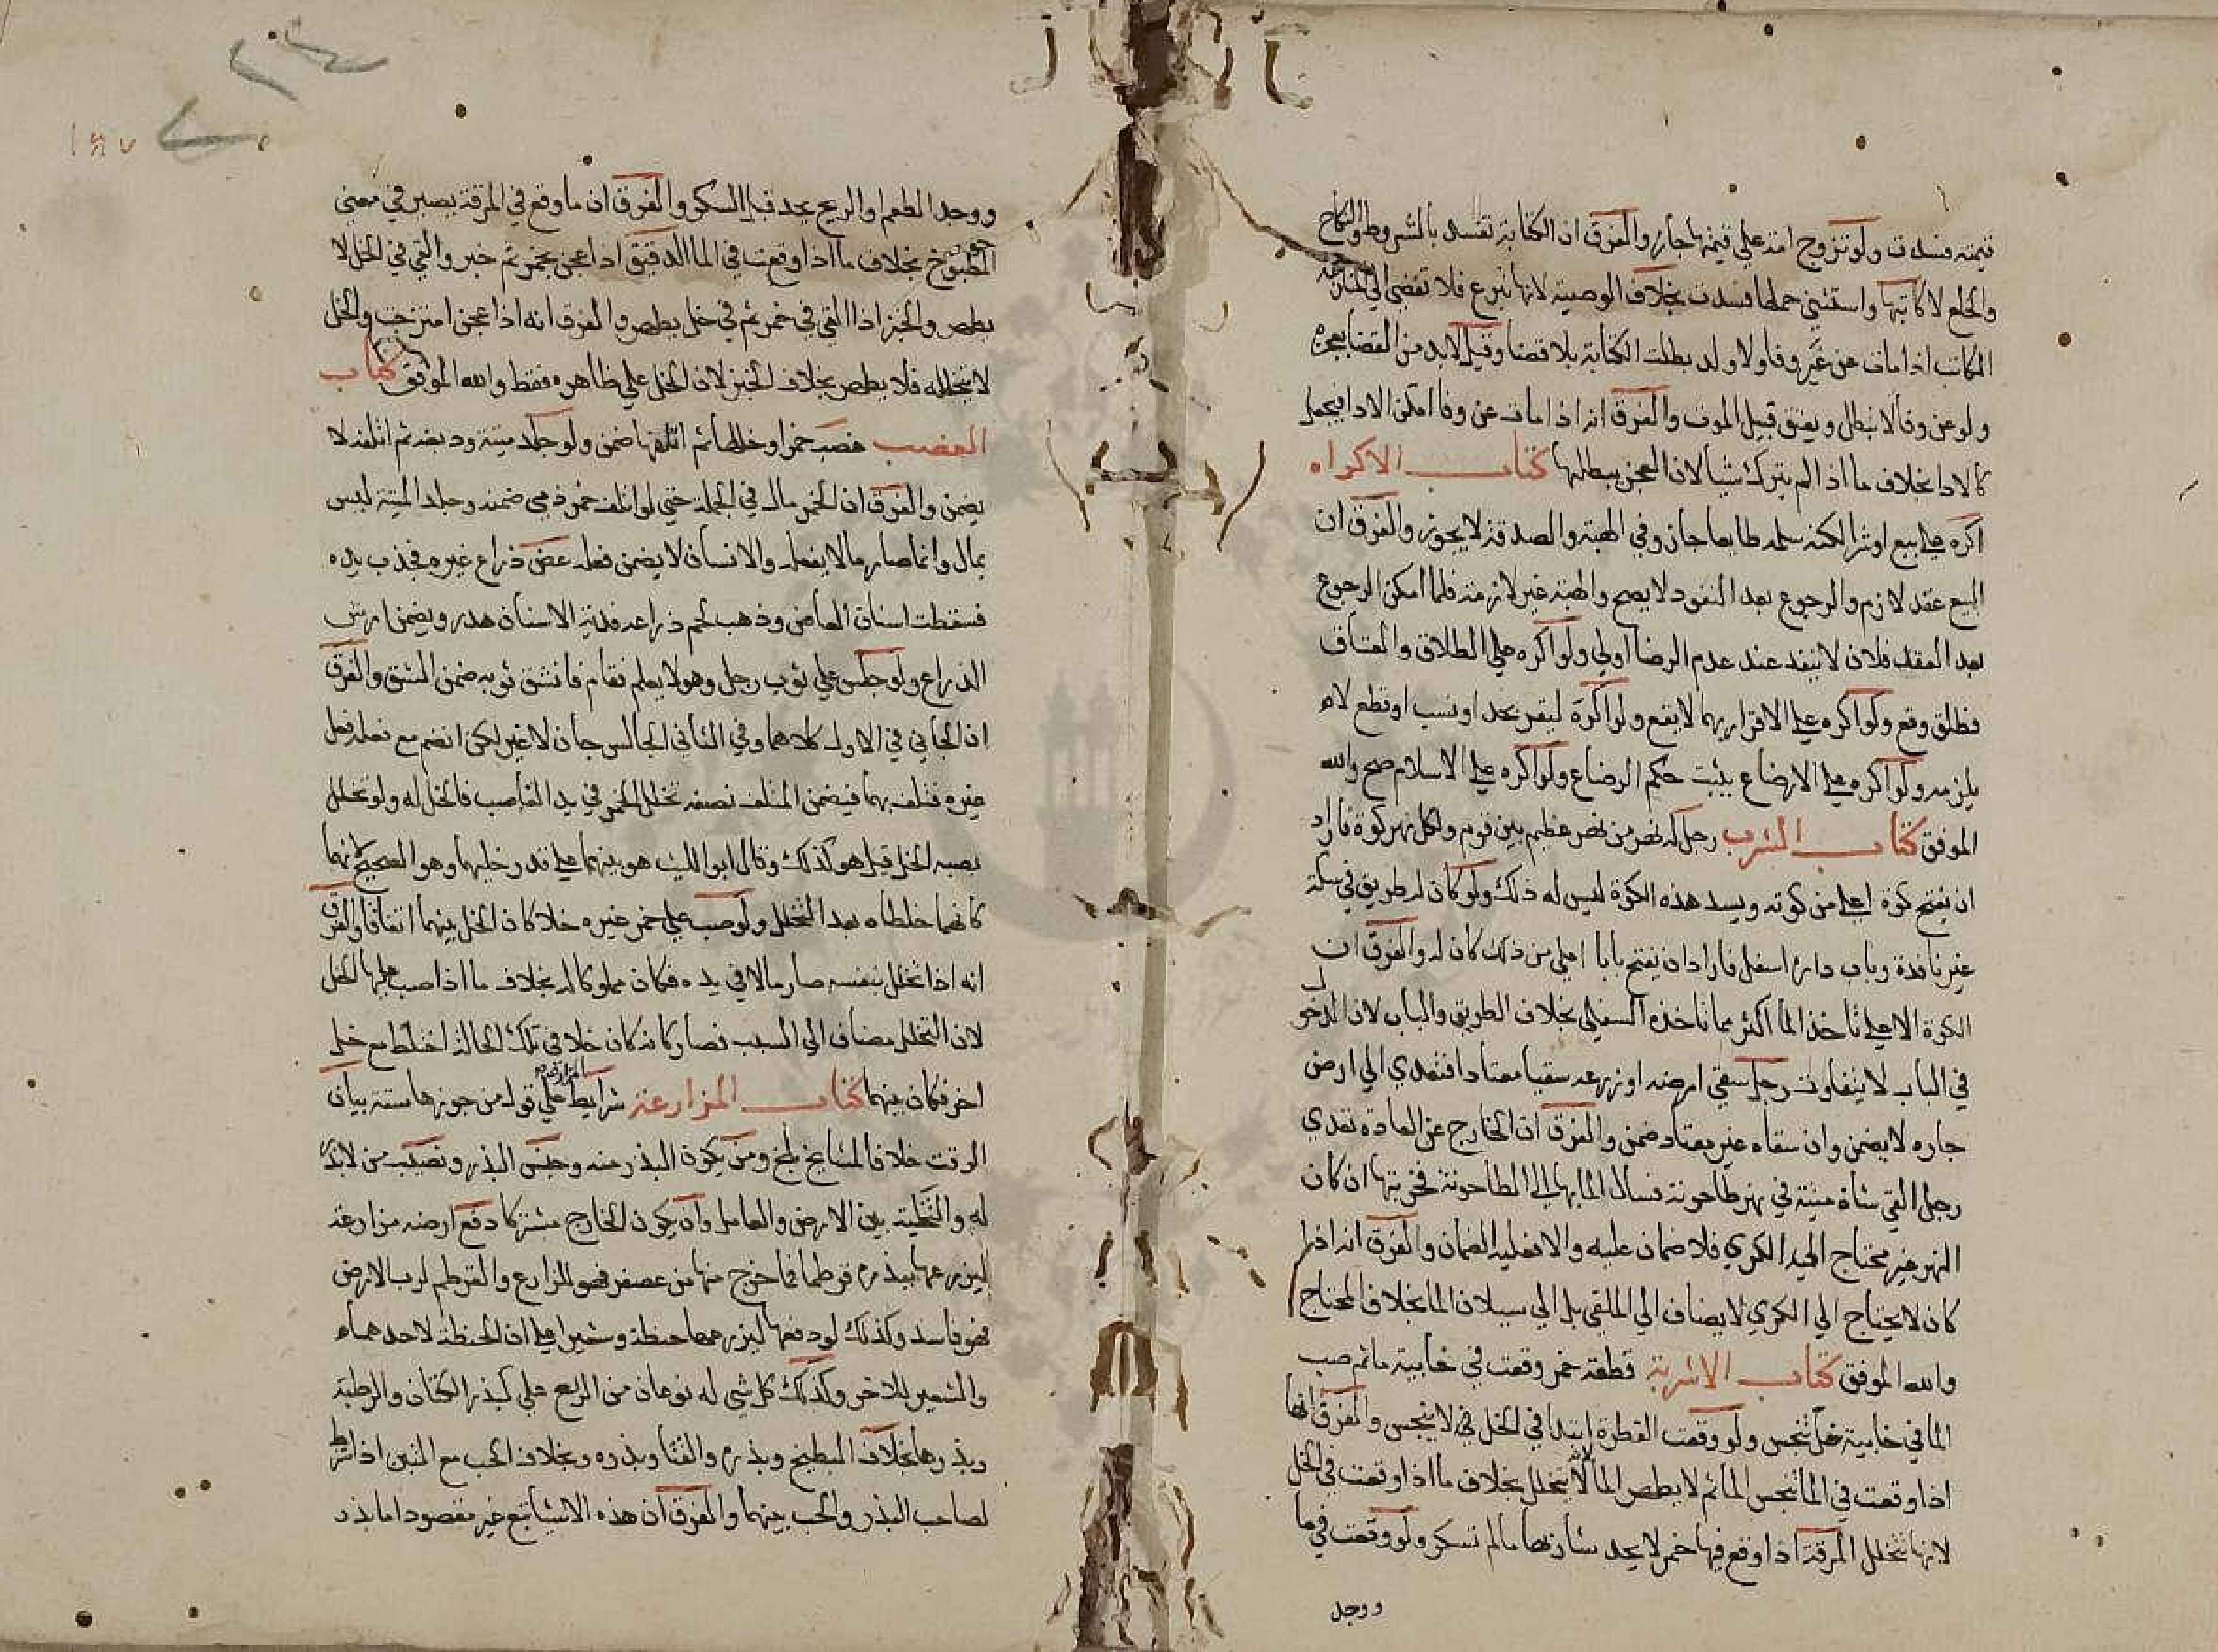 قيمته فسدت ولو تزوج امة علي قيمتها جاز والفرق ان الكتابة تفسد بالشروط والنكاح
والخلع لا كاتبها واستثني حملها فسدت بخلاف الوصية لانها تبرع فلا تفضي الي المنازعة
المكاتب اذا مات عن غير وفا ولا ولد بطلت الكتابة بلا قضا وقيل لا بد من القضا بعجزه
ولو عن وفا لا تبطل ويعتق قبيل الموت والفرق انه اذا مات عن وفا امكن الادا فيجعل
كالادا بخلاف ما اذا لم يترك شيا لان العجز يبطلها كتاب الاكراه
اكره علي بيع او شرا لكنه سلمه طايعا جاز وفي الهبة والصدقة لا يجوز والفرق ان
البيع عقد لازم والرجوع بعد النفود لا يصح والهبة غير لازمة فلما امكن الرجوع
بعد العقد فلان لا ينفد عند عدم الرضا اولي ولو اكره علي الطلاق والعتاق
فطلق وقع ولو اكره علي الاقرار بهما لا يقع ولو اكره ليقر بحد او نسب او قطع لا
يلزمه ولو اكره علي الارضاع يثبت حكم الرضاع ولو اكره علي الاسلام صح والله
الموفق كتاب الشرب رجل له نهر من نهر عظيم بين قوم ولكل نهر كوة فاراد
ان يفتح كوة اعلي من كوته ويسد هذه الكوة ليس له ذلك ولو كان له طريق في سكة
غير نافدة وباب داره اسفل فاراد ان يفتح بابا اعلي من ذلك كان له والفرق ان
الكوة الاعلي تاخذ الما اكثر مما تاخذه السفلي بخلاف الطريق والباب لان الدخول
في الباب لا يتفاوت رجل سقي ارضه او زرعه سقيا معتادا فتعدي الي ارض
جاره لا يضمن وان سقاه غير معتاد ضمن والفرق ان الخارج عن العادة تعدي
رجل القي شاة ميتة في نهر طاحونة فسال الما بها الي الطاحونة فخربتها ان كان
النهر غير محتاج الي الكري فلا ضمان عليه والا فعليه الضمان والفرق انه اذا
كان لا يحتاج الي الكري لا يضاف الي الملقي بل الي سيلان الما بخلاف المحتاج
والله الموفق كتاب الاشربة قطعة خمر وقعت في خابية ما ثم صب
الما في خابية خل تنجس ولو وقعت القطرة ابتدا في الخل لا ينجس والفرق انها
اذا وقعت في الما تنجس الما ثم لا يطهر الما لانه لا يتخلل بخلاف ما اذا وقعت في الخل
لانها تتخلل المرقة اذا وقع فيها خمر لا يحد شاربها ما لم تسكر ولو وقعت في ما
ووجد
ووجد الطعم او الريح يحد قبل السكر والفرق ان ما وقع في المرقة يصير في معني
المطبوخ بخلاف ما اذا وقعت في الما الدقيق اذا عجن بخمر ثم خبز والقي في الخل لا
يطهر والخبز اذا القي في خمر ثم في خل يطهر والفرق انه اذا عجن امتزجت والخل
لا يتخلله فلا يطهر بخلاف الخبز لان الخل علي ظاهره فقط والله الموفق كتاب
الغصب غصب خمرا وخللها ثم اتلفها ضمن ولو جلد ميتة ودبغه ثم اتلفه لا
يضمن والفرق ان الخمر مال في الجملة حتي لو اتلف خمر ذمي ضمنه وجلد الميتة ليس
بمال وانما صار مالا بفعله والانسان لا يضمن فعله عض ذراع غيره فجذب يده
فسقطت اسنان العاض وذهب لحم ذراعه فدية الاسنان هدر ويضمن ارش
الذراع ولو جلس علي ثوب رجل وهو لا يعلم فقام فانشق ثوبه ضمن الشق والفرق
ان الجاني في الاول كلاهما وفي الثاني الجالس جان لا غير لكن انضم مع فعله فعل
غيره فتلف بهما فيضمن المتلف نصفه تخلل الخمر في يد الغاصب فالخل له ولو تخلل
بصبه الخل قيل هو كذلك وقال ابو الليث هو بينهما علي قدر خليهما وهو الصحيح لانهما
كانهما خلطاه بعد التخلل ولو صب علي خمر غيره خلا كان الخل بينهما اتفاقا والفرق
انه اذا تخلل بنفسه صار مالا في يده فكان مملوكا له بخلاف ما اذا صب عليها الخل
لان التخلل مضاف الي السبب فصار كانه كان خلا في تلك الحالة اختلط مع خل
اخر فكان بينهما كتاب المزارعة شرايط المزارعة علي قول من جوزها ستة بيان
الوقت خلافا لمشايخ بلخ ومن يكون البذر منه وجنس البذر ونصيب من لا بذر
له والتخلية بين الارض والعامل وان يكون الخارج مشتركا دفع ارضه مزارعة
ليزرعها ببذره قرطما فما خرج منها من عصفر فهو للمزارع والقرطم لرب الارض
فهو فاسد وكذلك لو دفعها ليزرعها حنطة وشعيرا علي ان الحنطة لاحدهما
والشعير للاخر وكذلك كل شي له نوعان من الريع علي كبذر الكتان والرطبة
وبذرها بخلاف البطيخ وبذره والقثا وبذره وبخلاف الحب مع التبن اذا شرط
لصاحب البذر والحب بينهما والفرق ان هذه الاشيا تبع غير مقصود اما بذر